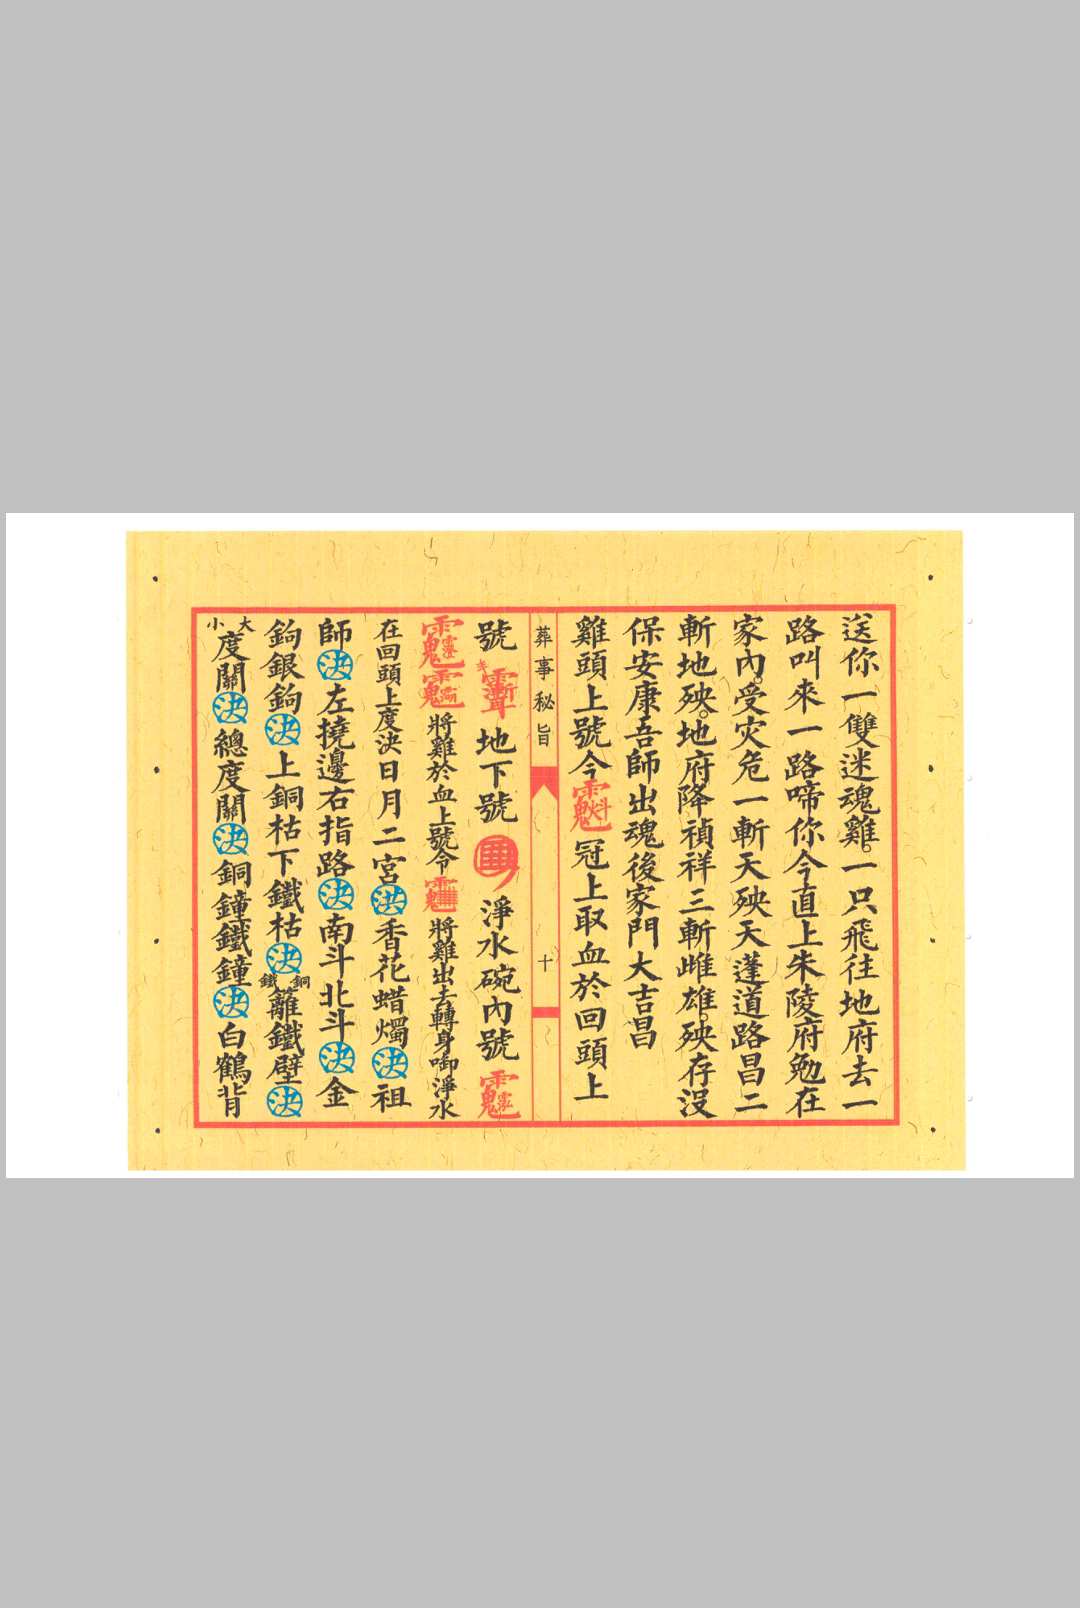 送你一雙迷魂雞。一只飛往地府去一
路叫來一路啼你今直上朱陵府勉在
家內。受灾危一斬天殃天蓬道路昌二
斬地殃。地府降禎祥三斬雌雄。殃存沒
保安康吾師出魂後家門大吉昌
雞頭上號令冠上取血於回頭上
葬事秘旨
十
號地下號淨水碗內號
將雞於血上號令將雞出去轉身啣淨水
在回頭上度決日月二宮決香花蜡燭決祖
師決左撓邊右指路決南斗北斗決金
鉤銀鉤決上銅枯下鐵枯決銅鐵籬鐵壁決
大小度關決總度關決銅鐘鐵鐘決白鶴背